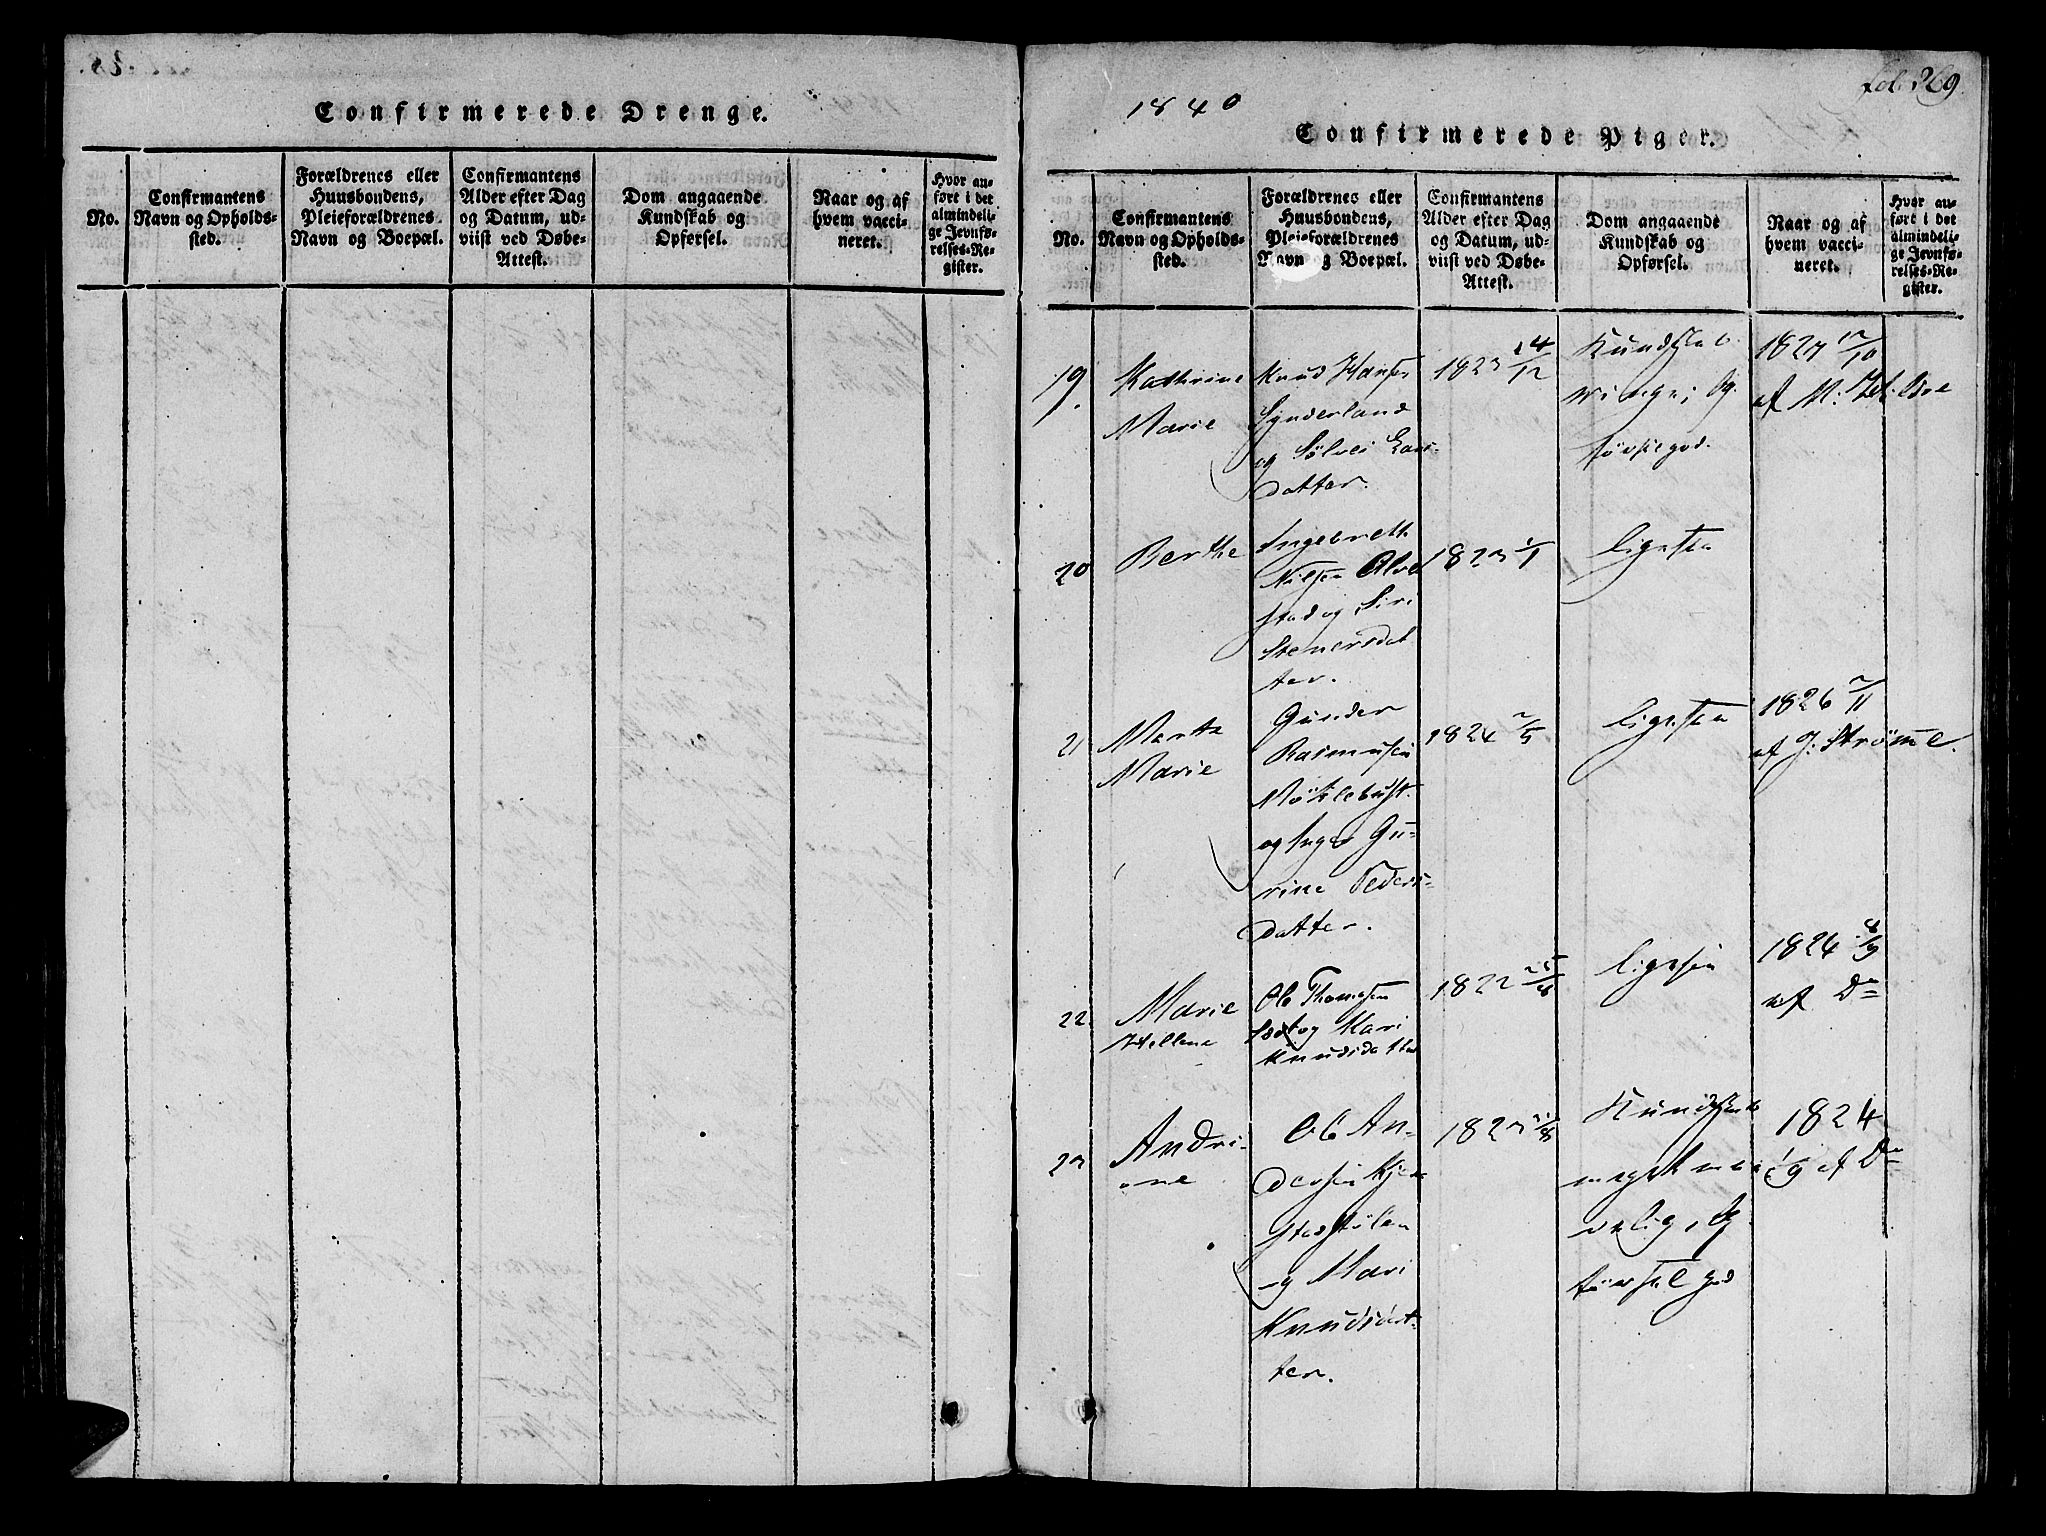 Confirmerede Drenge.
No.
Confirmantens
Navn og Opholds-
sted.
Forældrenes eller
Huusbondens,
Pleieforældrenes
Navn og Boepæl.
Confirmantens
Alder efter Dag
og Datum, ud-
viist ved Døbe-
Attest.
Dom angaaende
Kundskab og
Opførsel.
Naar og af
hvem vacci-
neret.
Hvor an-
ført i det
almindeli-
ge Jevnfø-
relses-Re-
gister.
fol. 269
1840
Confirmerede Piger.
No.
Confirmantens
Navn og Opholds-
sted.
Forældrenes eller
Huusbondens,
Pleieforældrenes
Navn og Boepæl.
Confirmantens
Alder efter Dag
og Datum, ud-
viist ved Døbe-
Attest.
Dom angaaende
Kundskab og
Opførsel.
Naar og af
hvem vacci-
neret.
Hvor an-
ført i det
almindeli-
ge Jevnfø-
relses-Re-
gister.
19.
Kathrine
Marie
Knud Hansen
Synderland
og Sölvei Lars-
datter.
1823 14/12
Kundskab
ringe; Op-
førsel god.
1827 12/10
af M:
20
Berthe
Ingebreth
Nilsen Alve
stad og Siri
Stenersdat
ter.
1823 1/1
ligesaa
21
Marte
Marie
Gunder
Rasmusen
Möklebust
og Inger Gu-
rine Peders-
datter.
1824 2/5
ligesaa
1826 2/11
af J. Strömme.
22
Marie
Hellene
Ole Thomasen
og Mari
Knudsdatter
1822
ligesaa
1824 8/9
af Do
23
Andri-
ane
Ole An-
dersen Kje
stadstölen
og Mari
Knudsdat-
ter.
1823
Kundskab
meget maa
delig, Op-
førsel god
1824
1/9 af Do